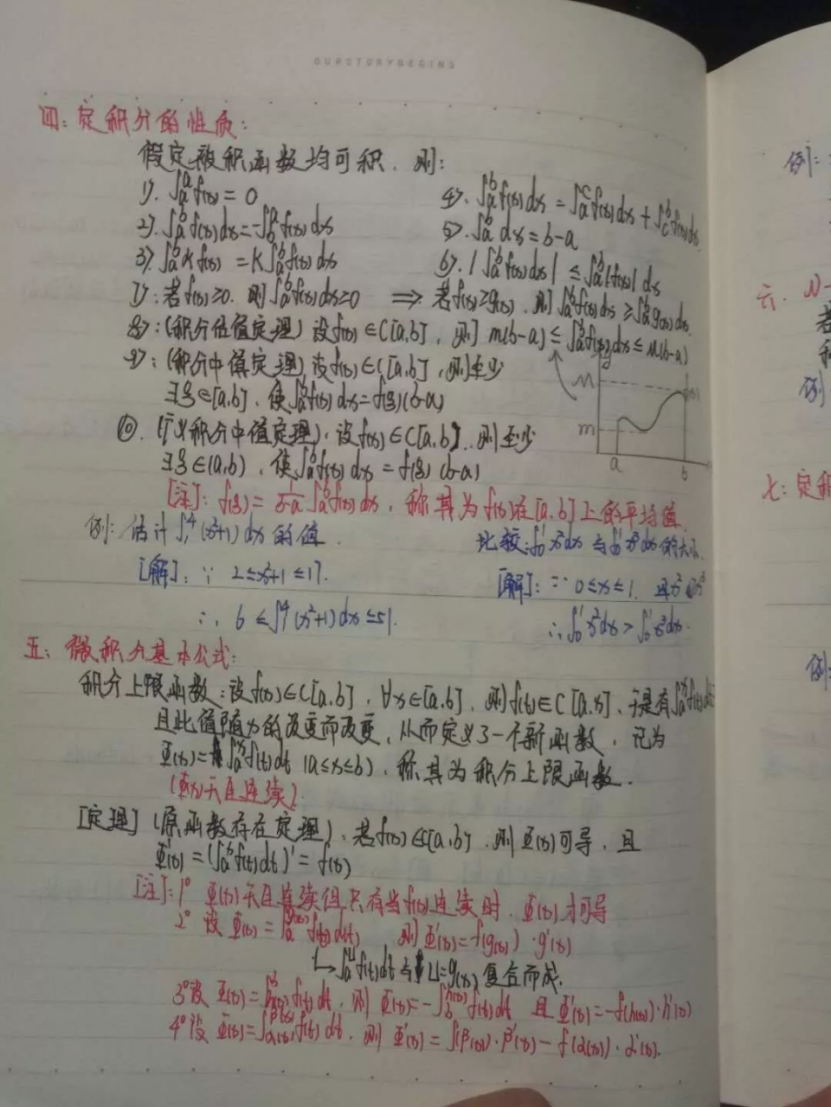 OURSTORYBEGINS
四:定积分的性质:
假定被积函数均可积.则:
1). ∫ₐᵃf(x) = 0
4). ∫ₐᵇf(x)dx = ∫ₐᶜf(x)dx + ∫꜀ᵇf(x)dx
2). ∫ₐᵇf(x)dx = -∫ᵦᵃf(x)dx
5). ∫ₐᵇdx = b-a
3). ∫ₐᵇKf(x) = K∫ₐᵇf(x)dx
6). |∫ₐᵇf(x)dx| ≤ ∫ₐᵇ|f(x)|dx
7): 若f(x)≥0. 则∫ₐᵇf(x)dx≥0 ⟹ 若f(x)≥g(x). 则∫ₐᵇf(x)dx ≥ ∫ₐᵇg(x)dx.
8): (积分估值定理) 设f(x)∈C[a,b], 则 m(b-a) ≤ ∫ₐᵇf(x)dx ≤ M(b-a)
9): (积分中值定理), 设f(x)∈C[a,b], 则至少
∃ξ∈[a,b], 使∫ₐᵇf(x)dx = f(ξ)(b-a)
y
M
m
a
b
⑩. (广义积分中值定理), 设f(x)∈C[a,b]. 则至少
∃ξ∈(a,b), 使∫ₐᵇf(x)dx = f(ξ)(b-a)
[注]: f(ξ) = 1/(b-a) ∫ₐᵇf(x)dx, 称其为f(x)在[a,b]上的平均值.
例: 估计∫₁⁴(x²+1)dx的值.
比较:∫₀¹x²dx与∫₀¹x³dx的大小.
[解]: ∵ 2≤x²+1≤17.
[解]: ∵ 0≤x≤1. 且x² x³
∴ 6≤∫₁⁴(x²+1)dx≤51.
∴∫₀¹x²dx > ∫₀¹x³dx.
五: 微积分基本公式:
积分上限函数: 设f(x)∈C[a,b], ∀x∈[a,b], 则f(t)∈C[a,x], 于是有∫ₐˣf(t)dt
且此值随x的改变而改变, 从而定义了一个新函数, 记为
Φ(x) = ∫ₐˣf(t)dt (a≤x≤b), 称其为积分上限函数.
(Φ(x)天生连续).
[定理] (原函数存在定理), 若f(x)∈C[a,b], 则Φ(x)可导, 且
Φ'(x) = (∫ₐˣf(t)dt)' = f(x)
[注]: 1° Φ(x)天生连续但只有当f(x)连续时, Φ(x)才可导
2° 设Φ(x) = ∫ₐ^g(x) f(t)dt, 则Φ'(x) = f(g(x))·g'(x)
↳∫ₐᵘf(t)dt与u=g(x)复合而成.
3° 设Φ(x) = ∫_h(x)^b f(t)dt, 则Φ(x) = -∫_b^h(x) f(t)dt 且Φ'(x) = -f(h(x))·h'(x)
4° 设Φ(x) = ∫_α(x)^β(x) f(t)dt, 则Φ'(x) = f(β(x))·β'(x) - f(α(x))·α'(x).
例:
六.
若
例
七: 定积
例: